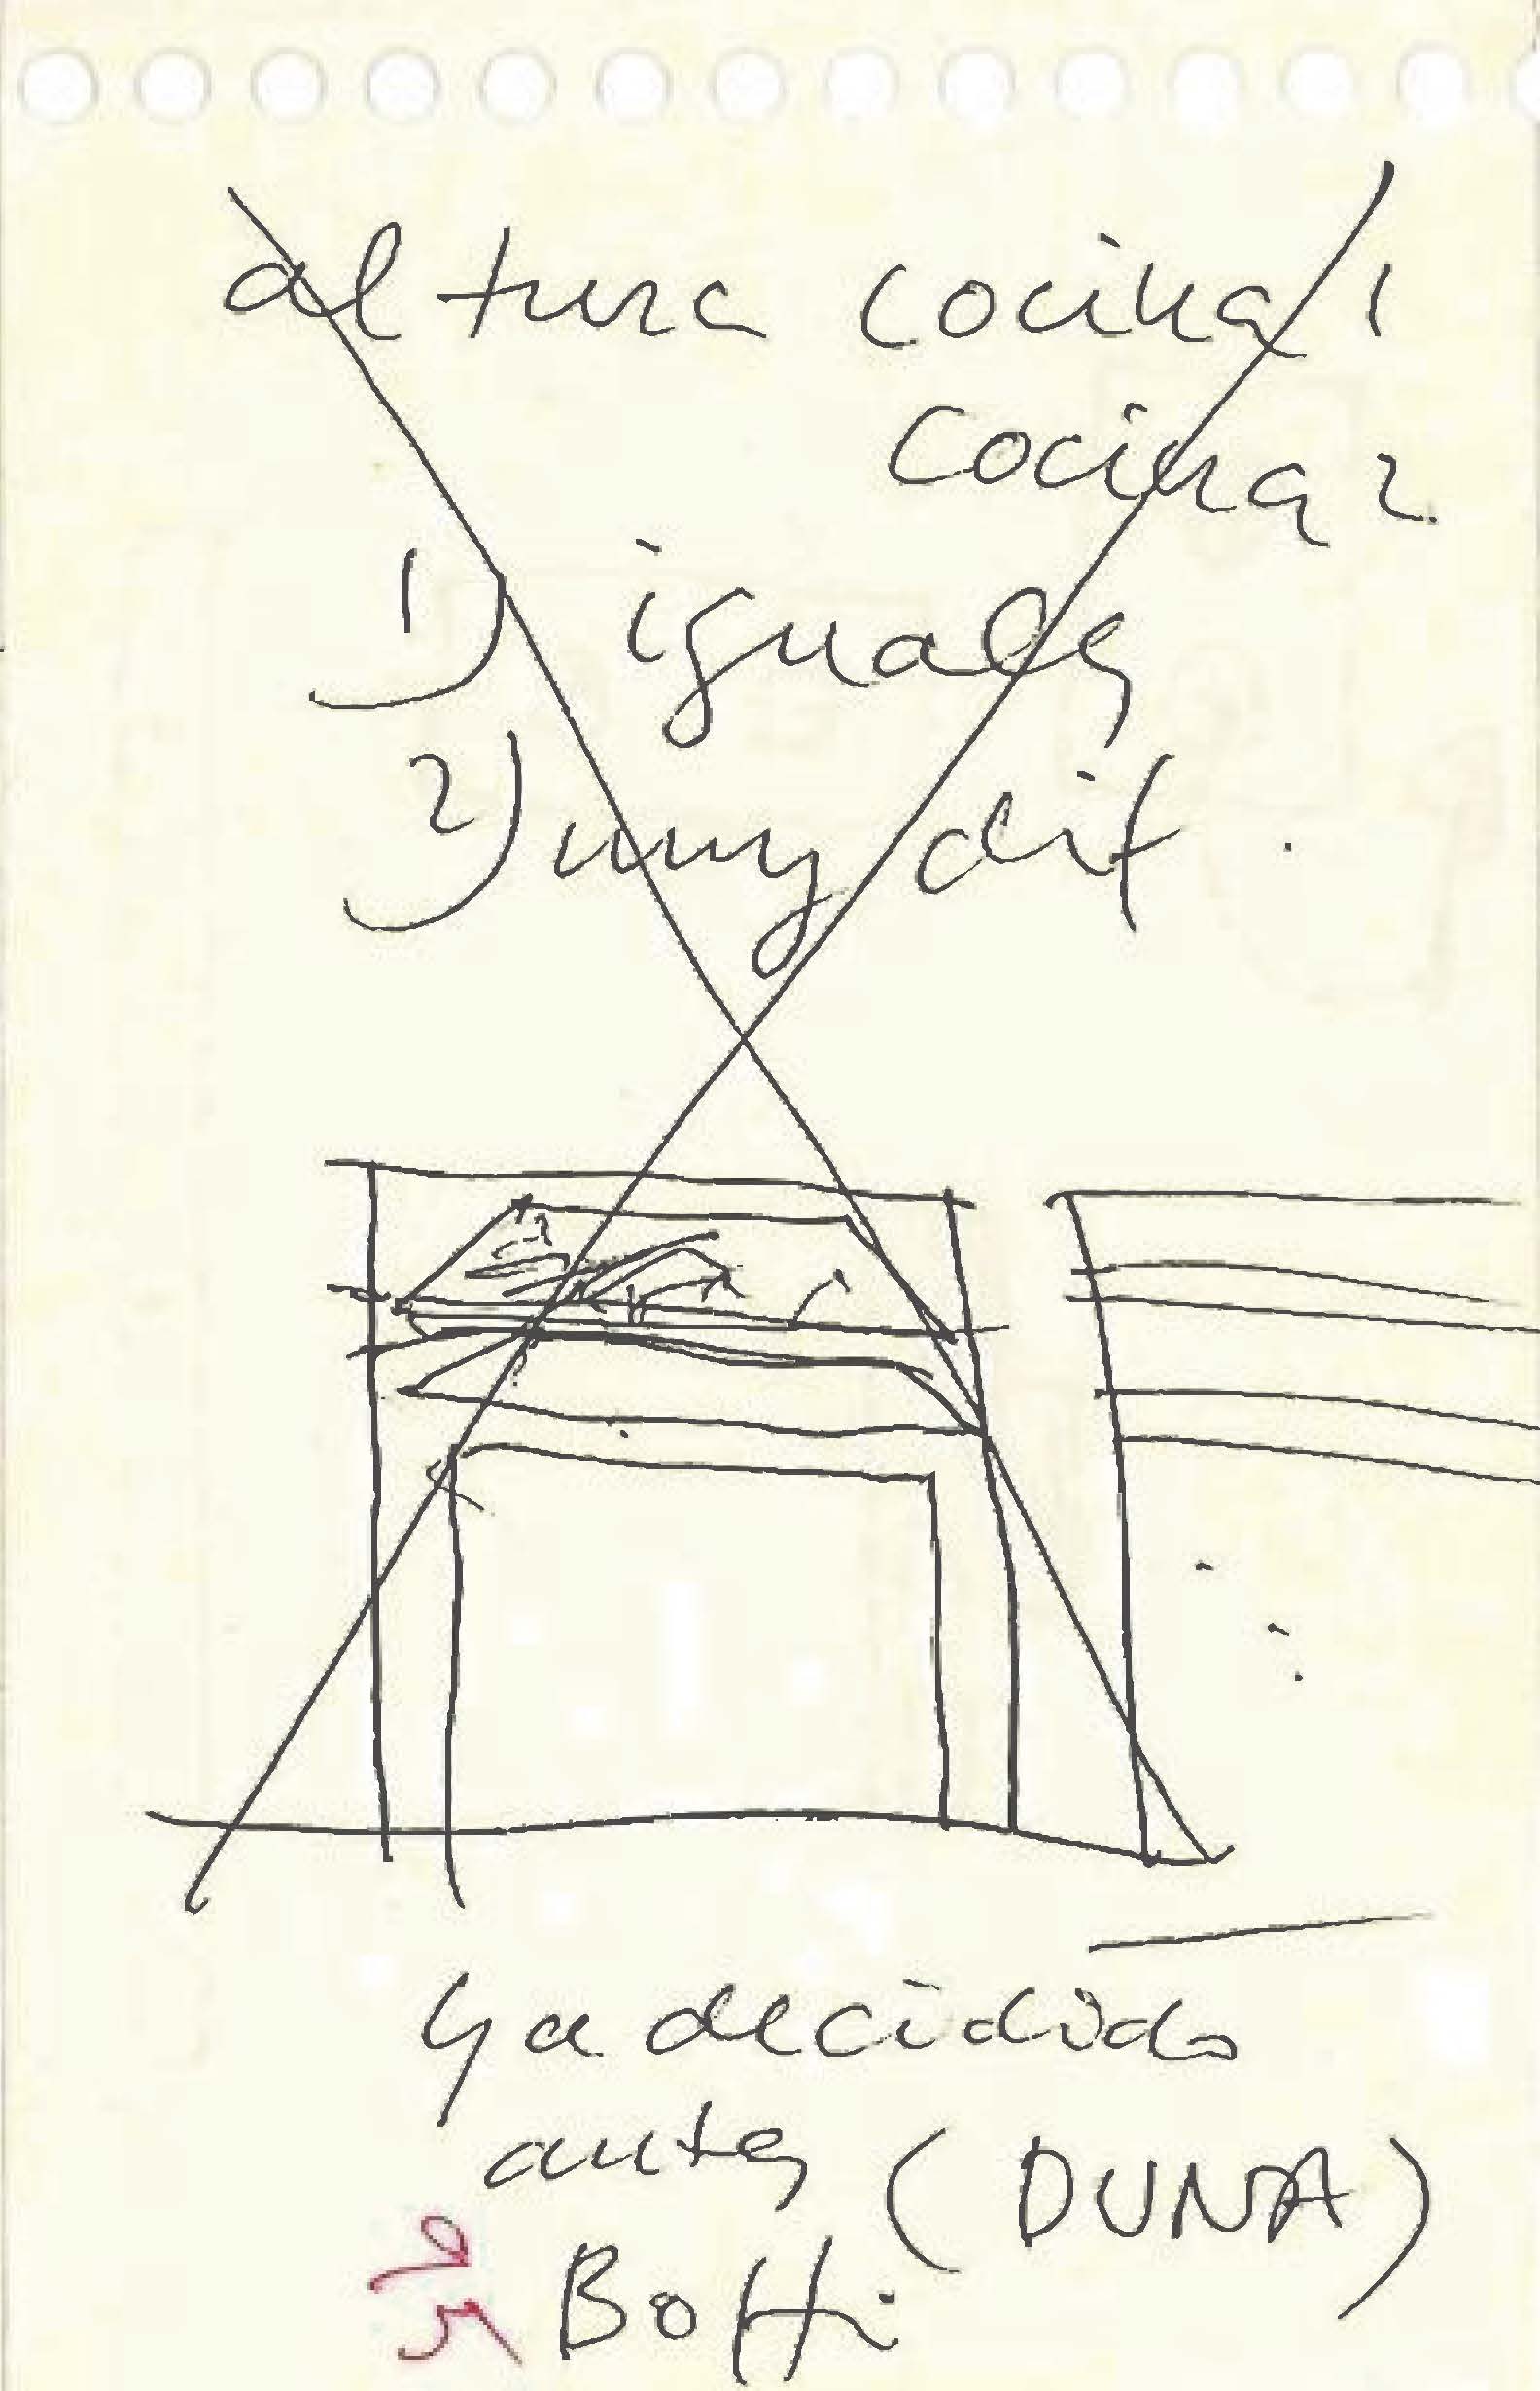 altura cocina 1
cocina 2.
1) iguales
2) muy dif.
ya decidido
antes (DUNA)
Boffi